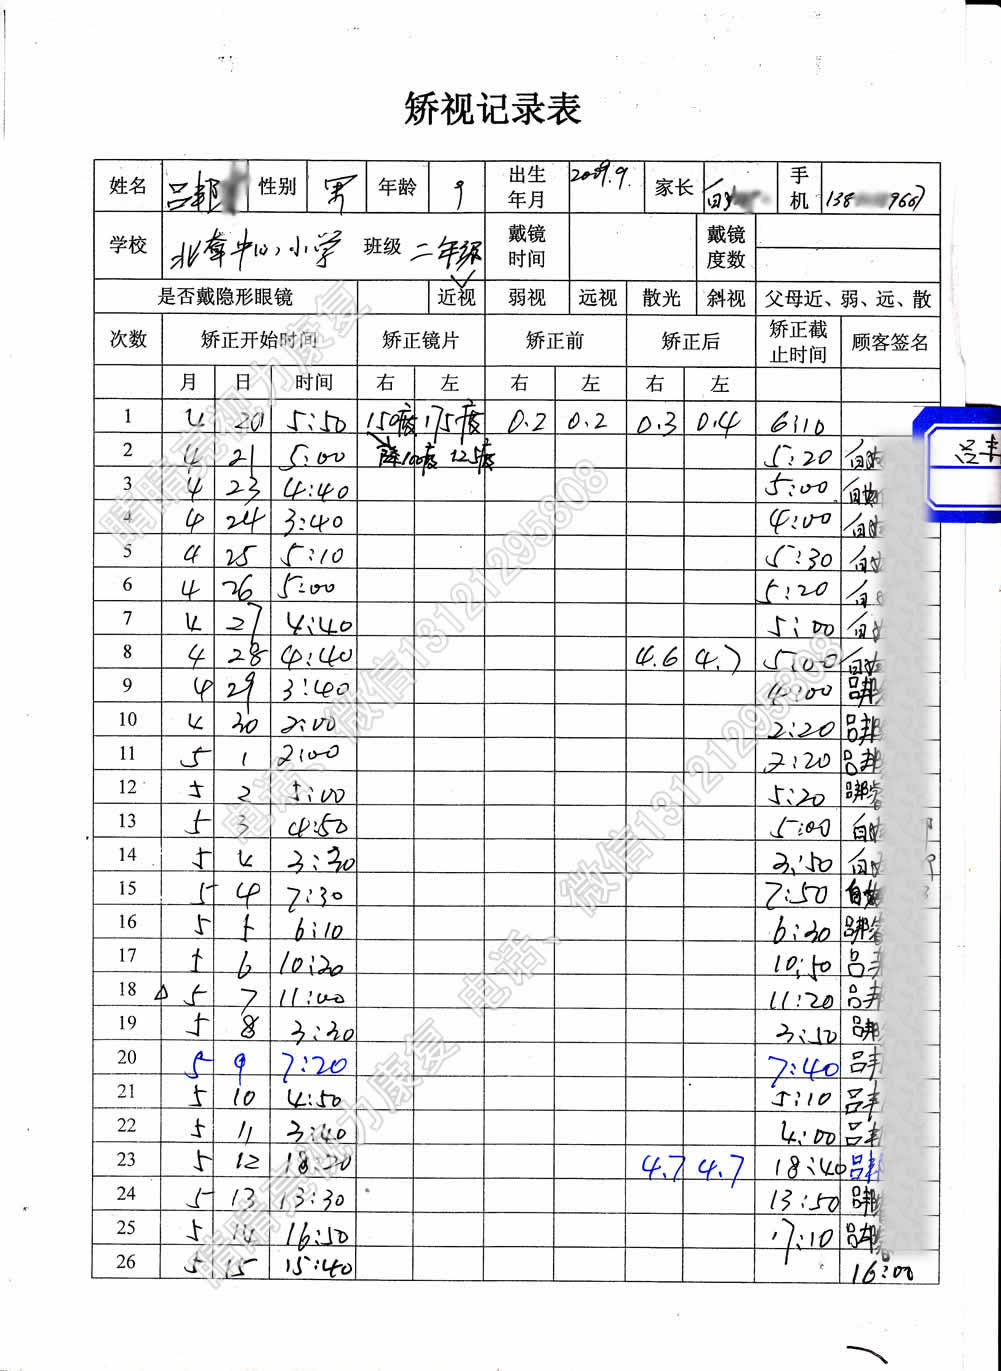 矫视记录表
姓名 吕邦 性别 男 年龄 9 出生年月 2009.9. 家长 白 手机 138 9667
学校 北 中心小学 班级 二年级 戴镜时间 戴镜度数
是否戴隐形眼镜 近视 ✓ 弱视 远视 散光 斜视 父母近、弱、远、散
次数 矫正开始时间 矫正镜片 矫正前 矫正后 矫正截止时间 顾客签名
月 日 时间 右 左 右 左 右 左
1 4 20 5:50 150度 175度 0.2 0.2 0.3 0.4 6:10
2 4 21 5:00 降100度 125度 5:20 白
3 4 23 4:40 5:00 白
4 4 24 3:40 4:00 白
5 4 25 5:10 5:30 白
6 4 26 5:00 5:20 白
7 4 27 4:40 5:00 白
8 4 28 4:40 4.6 4.7 5:00 白
9 4 29 3:40 4:00 吕邦
10 4 30 2:00 2:20 吕邦
11 5 1 2:00 2:20 吕邦
12 5 2 5:00 5:20 吕邦
13 5 3 4:50 5:00 白
14 5 4 3:30 3:50 白
15 5 4 7:30 7:50 白
16 5 5 6:10 6:30 吕邦
17 5 6 10:20 10:50 吕
18 △ 5 7 11:00 11:20 吕邦
19 5 8 3:30 3:50 吕邦
20 5 9 7:20 7:40 吕邦
21 5 10 4:50 5:10 吕邦
22 5 11 3:40 4:00 吕邦
23 5 12 18:20 4.7 4.7 18:40 吕邦
24 5 13 13:30 13:50 吕邦
25 5 14 16:50 17:10 吕邦
26 5 15 15:40 16:00
吕邦
睛睛亮视力康复 电话、微信13121295808
睛睛亮视力康复 电话、微信13121295808